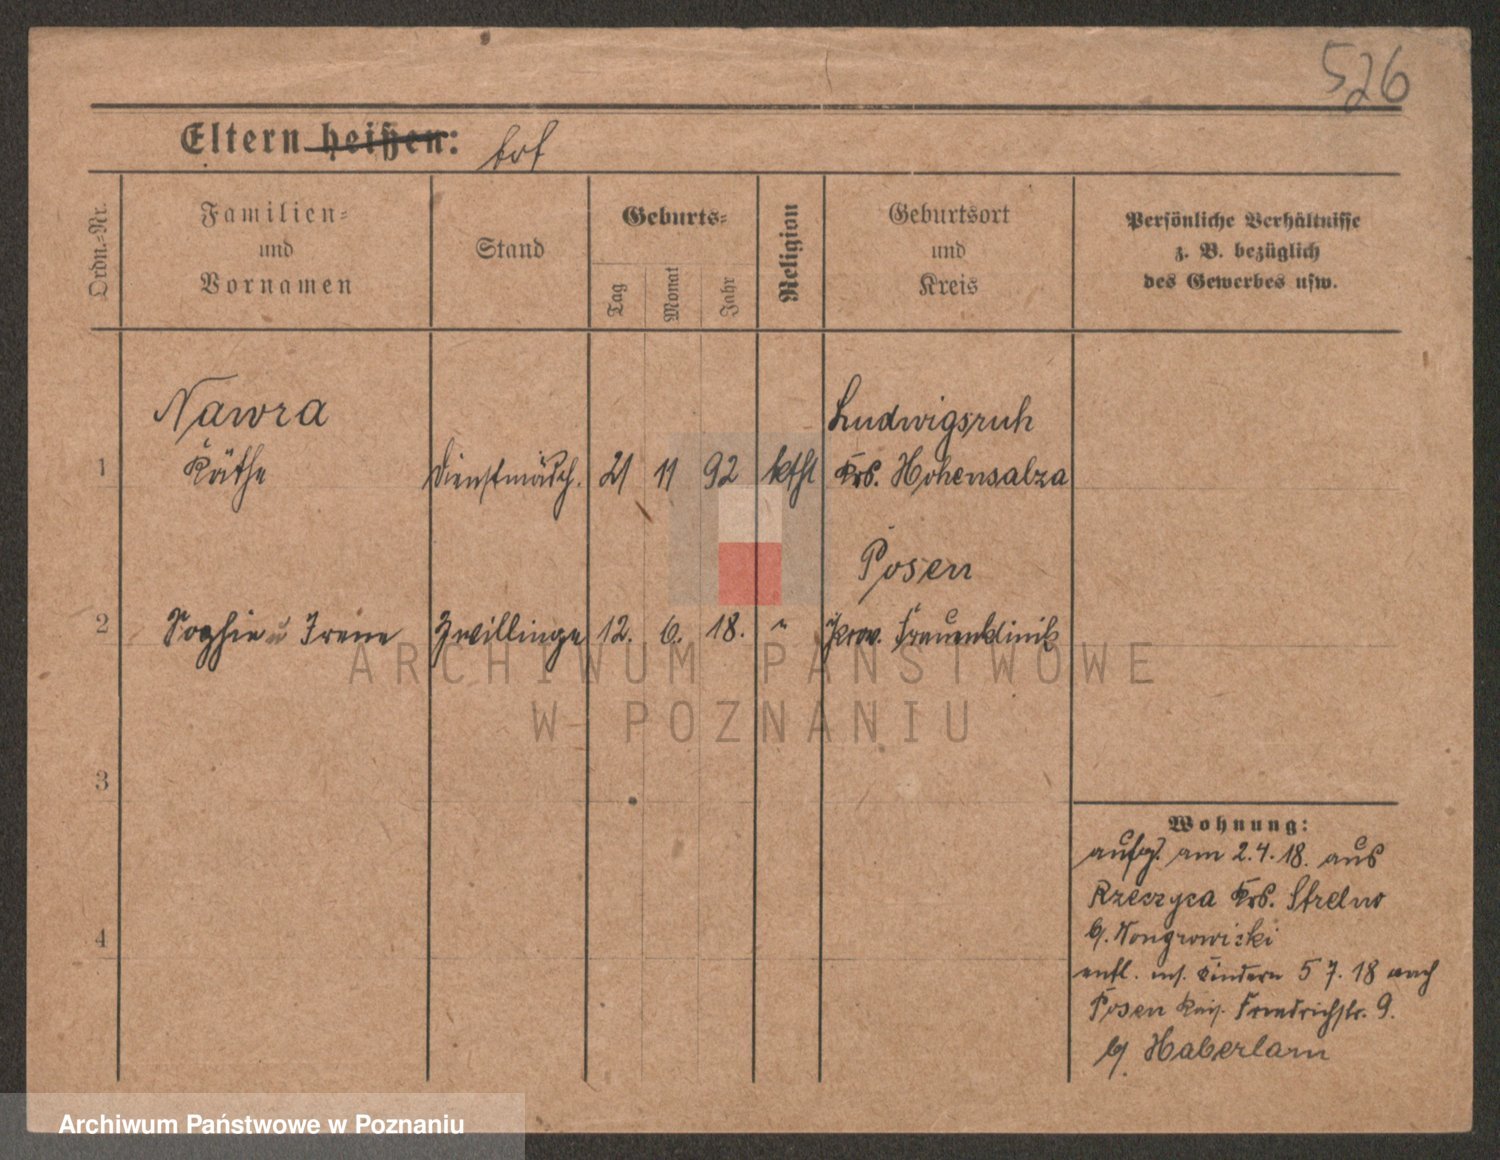 526
Eltern heißen: tot
Ordn.-Nr.
Familien-
und
Vornamen
Stand
Geburts-
Tag
Monat
Jahr
Religion
Geburtsort
und
Kreis
Persönliche Verhältnisse
z. B. bezüglich
des Gewerbes usw.
Nawra
Ludwigsruh
1 Käthe Dienstmädch. 21 11 92 kthl Krs. Hohensalza
Posen
2 Sophie u Irene Zwillinge 12. 6. 18. " Prov. Frauenklinik
ARCHIWUM PAŃSTWOWE
W POZNANIU
3
4
Wohnung:
aufg. am 2.4.18. aus
Rzeczyca Krs. Strelno
b.
entl. m. Kindern 5 7. 18 nach
Posen Kais. Friedrichstr. 9.
b. Haberlam
Archiwum Państwowe w Poznaniu